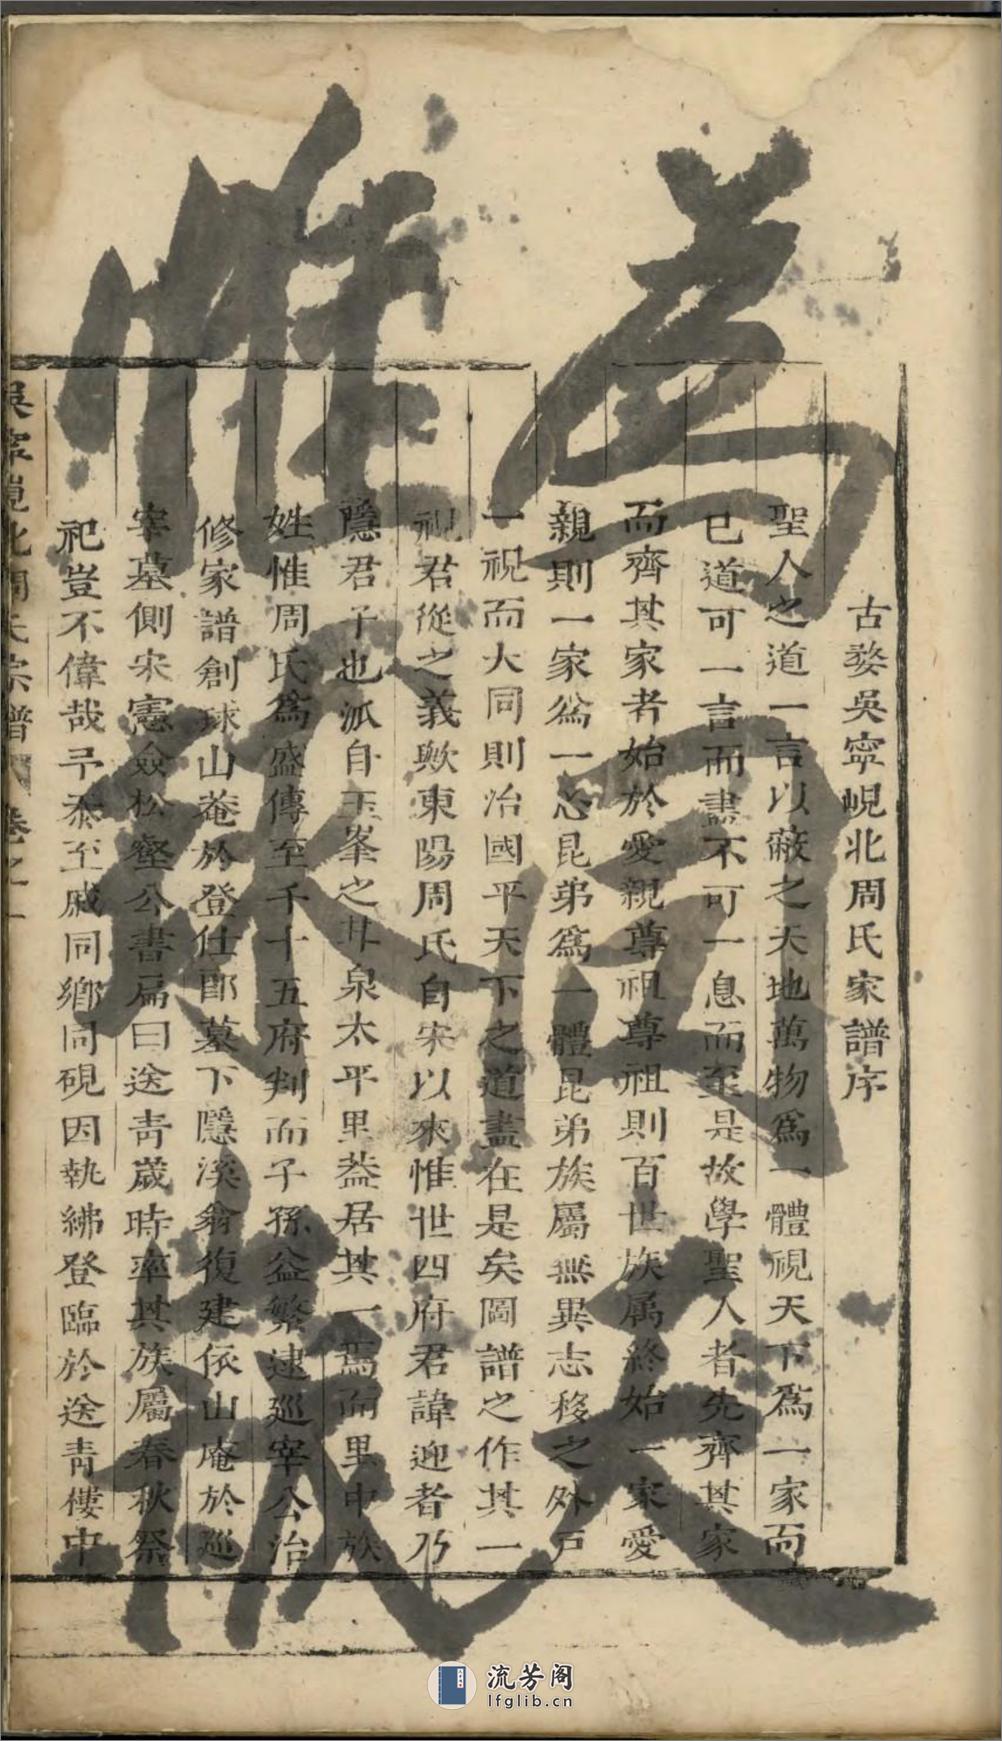 古婺吳寧峴北周氏家譜序
聖人之道一言以蔽之天地萬物爲一體視天下爲一家而
已道可一言而盡不可一息而至是故學聖人者先齊其家
而齊其家者始於愛親尊祖尊祖則百世族属終始一家愛
親則一家爲一心昆弟爲一體昆弟族屬無異志移之外戶
一視而大同則治國平天下之道盡在是矣圖譜之作其一
視君從之義歟東陽周氏自宋以來惟世四府君諱迎者乃
隱君子也派自玉峯之廿泉太平里葢居其一焉而里中族
姓惟周氏爲盛傳至千十五府判而子孫益繁逮廵宰公治
修家譜創球山菴於登仕郎墓下隱溪翁復建依山庵於廵
宰墓側宋憲僉松壑公書扁曰送青歲時率其族屬春秋祭
祀豈不偉哉予忝至戚同鄉同硯因執紼登臨於送青樓中
吳寧峴北周氏宗譜 卷之一
為
天
惟
流芳阁
lfglib.cn